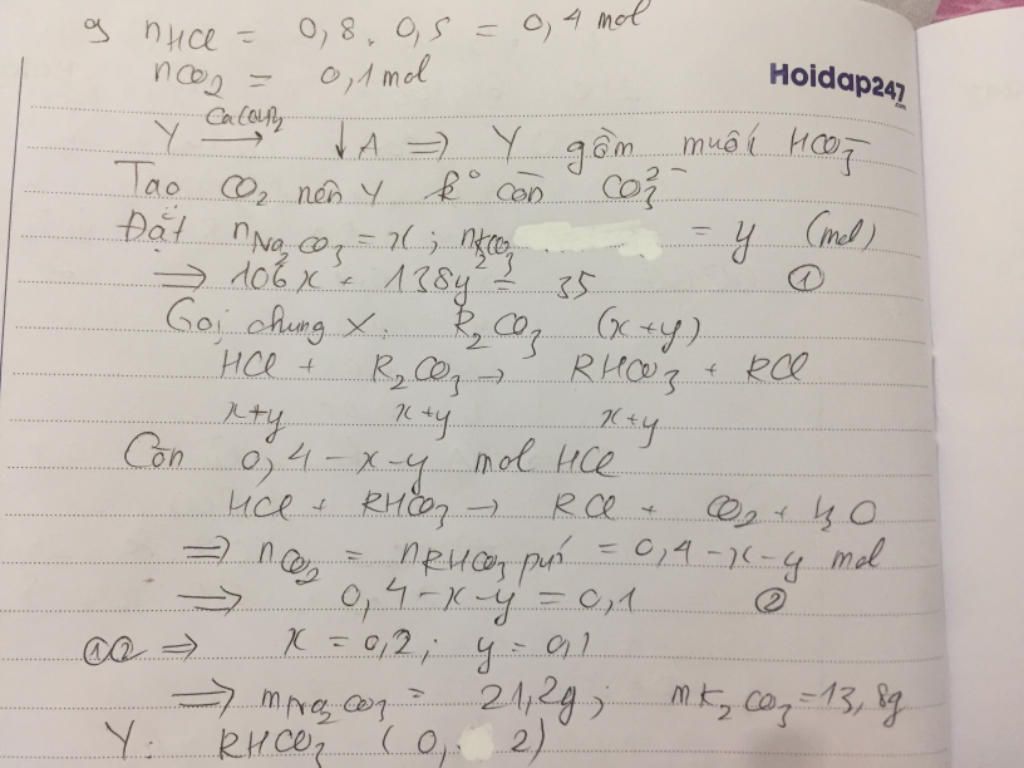 g nHCl = 0,8 . 0,5 = 0,4 mol
nCO2 = 0,1 mol
Hoidap247.com
Y Ca(OH)2 → ↓ A ⇒ Y gồm muối HCO3⁻
Tạo CO2 nên Y k° còn CO3²⁻
Đặt nNa2CO3 = x ; nK2CO3 = y (mol)
⇒ 106x + 138y = 35 ①
Gọi chung X. R2CO3 (x+y)
HCl + R2CO3 → RHCO3 + RCl
x+y x+y x+y
Còn 0,4-x-y mol HCl
HCl + RHCO3 → RCl + CO2 + H2O
⇒ nCO2 = nRHCO3 pứ = 0,4-x-y mol
⇒ 0,4-x-y = 0,1 ②
①② ⇒ x = 0,2; y = 0,1
⇒ mNa2CO3 = 21,2g; mK2CO3 = 13,8g
Y: RHCO3 (0, 2)